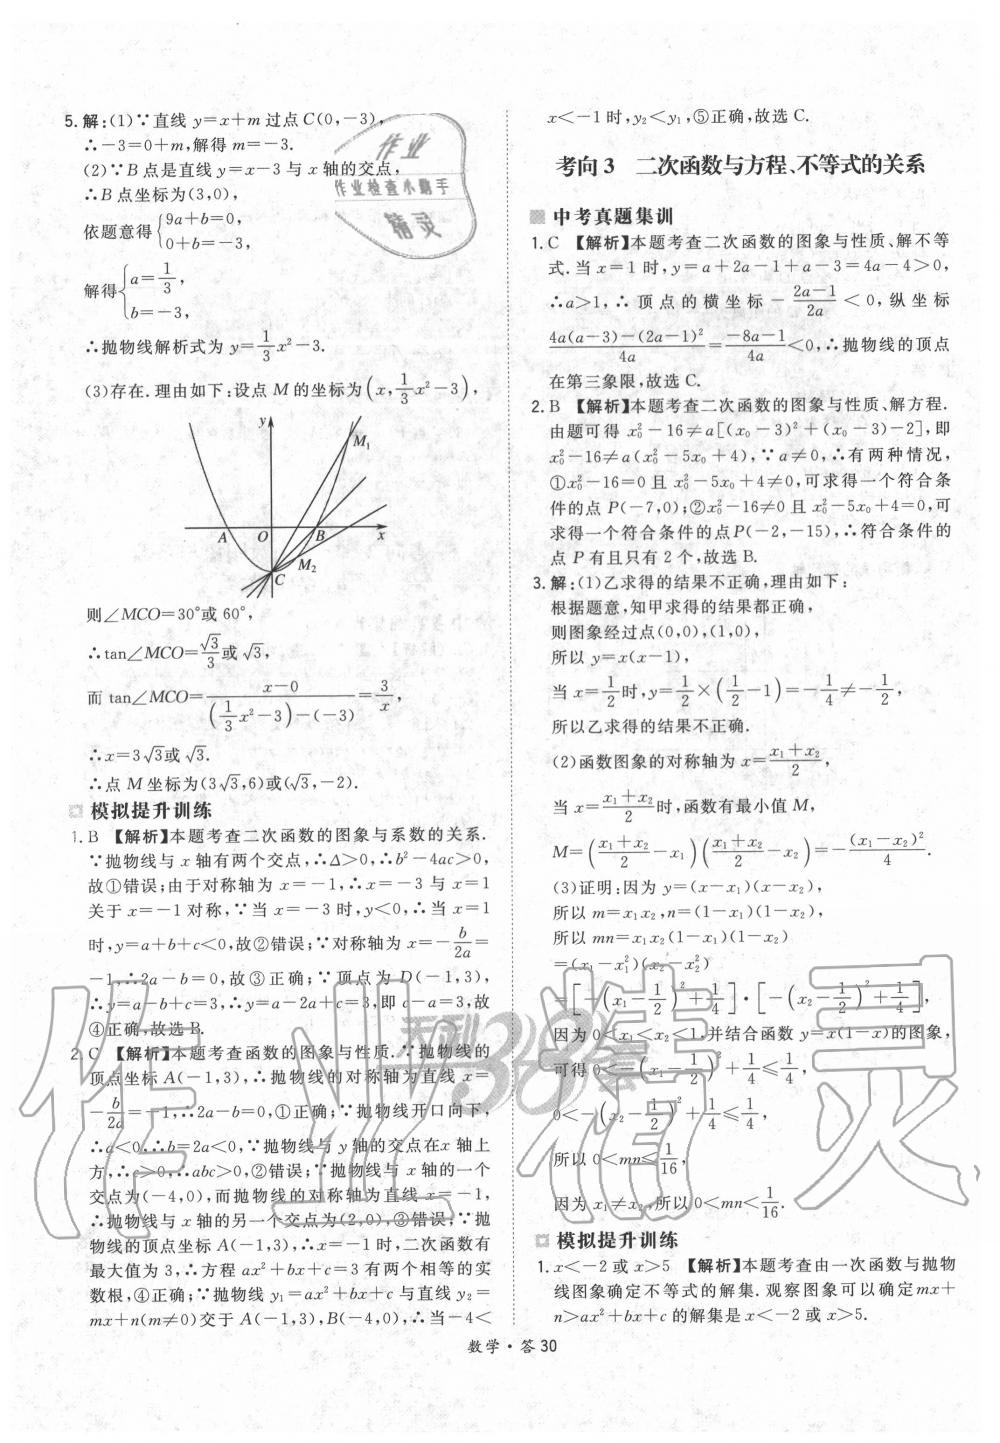 5. 解:(1)∵直线 y=x+m 过点 C(0,-3),
∴-3=0+m,解得 m=-3.
(2)∵B 点是直线 y=x-3 与 x 轴的交点,
∴B 点坐标为(3,0),
依题意得{9a+b=0, 0+b=-3,
解得{a=1/3, b=-3,
∴抛物线解析式为 y=1/3x²-3.
(3)存在.理由如下:设点 M 的坐标为(x,1/3x²-3),
y
M₁
A O B x
M₂
C
则∠MCO=30°或 60°,
∴tan∠MCO=√3/3或√3.
而 tan∠MCO=(x-0)/((1/3x²-3)-(-3))=3/x,
∴x=3√3或√3.
∴点 M 坐标为(3√3,6)或(√3,-2).
模拟提升训练
1. B 【解析】本题考查二次函数的图象与系数的关系.
∵抛物线与 x 轴有两个交点,∴Δ>0,∴b²-4ac>0,
故①错误;由于对称轴为 x=-1,∴x=-3 与 x=1
关于 x=-1 对称,∵当 x=-3 时,y<0,∴当 x=1
时,y=a+b+c<0,故②错误;∵对称轴为 x=-b/2a=
-1,∴2a-b=0,故③正确;∵顶点为 D(-1,3),
∴y=a-b+c=3,∴y=a-2a+c=3,即 c-a=3,故
④正确,故选 B.
2. C 【解析】本题考查函数的图象与性质.∵抛物线的
顶点坐标 A(-1,3),∴抛物线的对称轴为直线 x=
-b/2a=-1,∴2a-b=0,①正确;∵抛物线开口向下,
∴a<0,∴b=2a<0,∵抛物线与 y 轴的交点在 x 轴上
方,∴c>0,∴abc>0,②错误;∵抛物线与 x 轴的一个
交点为(-4,0),而抛物线的对称轴为直线 x=-1,
∴抛物线与 x 轴的另一个交点为(2,0),③错误;∵抛
物线的顶点坐标 A(-1,3),∴x=-1 时,二次函数有
最大值为 3,∴方程 ax²+bx+c=3 有两个相等的实
数根,④正确;∵抛物线 y₁=ax²+bx+c 与直线 y₂=
mx+n(m≠0)交于 A(-1,3),B(-4,0),∴当-4<
x<-1 时,y₂<y₁,⑤正确,故选 C.
考向 3 二次函数与方程、不等式的关系
中考真题集训
1. C 【解析】本题考查二次函数的图象与性质、解不等
式.当 x=1 时,y=a+2a-1+a-3=4a-4>0,
∴a>1,∴顶点的横坐标-(2a-1)/2a<0,纵坐标
(4a(a-3)-(2a-1)²)/4a=(-8a-1)/4a<0,∴抛物线的顶点
在第三象限,故选 C.
2. B 【解析】本题考查二次函数的图象与性质、解方程.
由题可得 x₀²-16≠a[(x₀-3)²+(x₀-3)-2],即
x₀²-16≠a(x₀²-5x₀+4),∵a≠0,∴有两种情况,
①x₀²-16=0 且 x₀²-5x₀+4≠0,可求得一个符合条
件的点 P(-7,0);②x₀²-16≠0 且 x₀²-5x₀+4=0,可
求得一个符合条件的点 P(-2,-15),∴符合条件的
点 P 有且只有 2 个,故选 B.
3. 解:(1)乙求得的结果不正确,理由如下:
根据题意,知甲求得的结果都正确,
则图象经过点(0,0),(1,0),
所以 y=x(x-1),
当 x=1/2时,y=1/2×(1/2-1)=-1/4≠-1/2,
所以乙求得的结果不正确.
(2)函数图象的对称轴为 x=(x₁+x₂)/2,
当 x=(x₁+x₂)/2时,函数有最小值 M,
M=((x₁+x₂)/2-x₁)((x₁+x₂)/2-x₂)=-(x₁-x₂)²/4.
(3)证明:因为 y=(x-x₁)(x-x₂),
所以 m=x₁x₂,n=(1-x₁)(1-x₂),
所以 mn=x₁x₂(1-x₁)(1-x₂)
=(x₁-x₁²)(x₂-x₂²)
=[-(x₁-1/2)²+1/4]·[-(x₂-1/2)²+1/4],
因为 0<x₁<x₂<1,并结合函数 y=x(1-x)的图象,
可得 0<-(x₁-1/2)²+1/4≤1/4,
0<-(x₂-1/2)²+1/4≤1/4,
所以 0<mn≤1/16,
因为 x₁≠x₂,所以 0<mn<1/16.
模拟提升训练
1. x<-2 或 x>5 【解析】本题考查由一次函数与抛物
线图象确定不等式的解集.观察图象可以确定 mx+
n>ax²+bx+c 的解集是 x<-2 或 x>5.
数学·答 30
作业
作业检查小助手
精灵
作业精灵